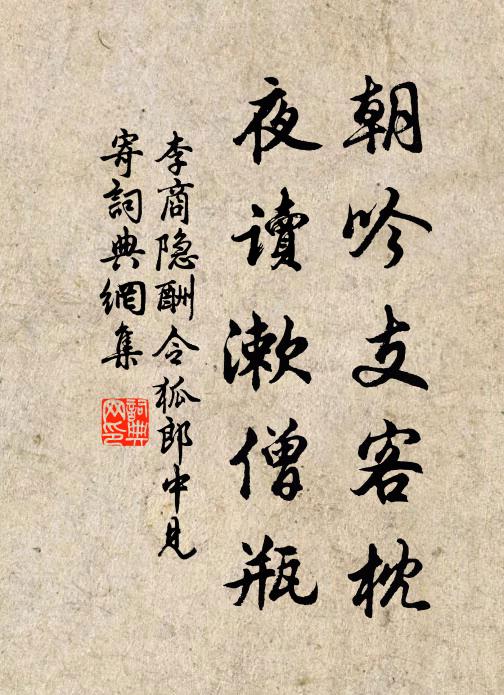 朝吟支客枕
夜读漱僧瓶
李商隐酬令狐郎中見
寄詞典網集
詞典
网印